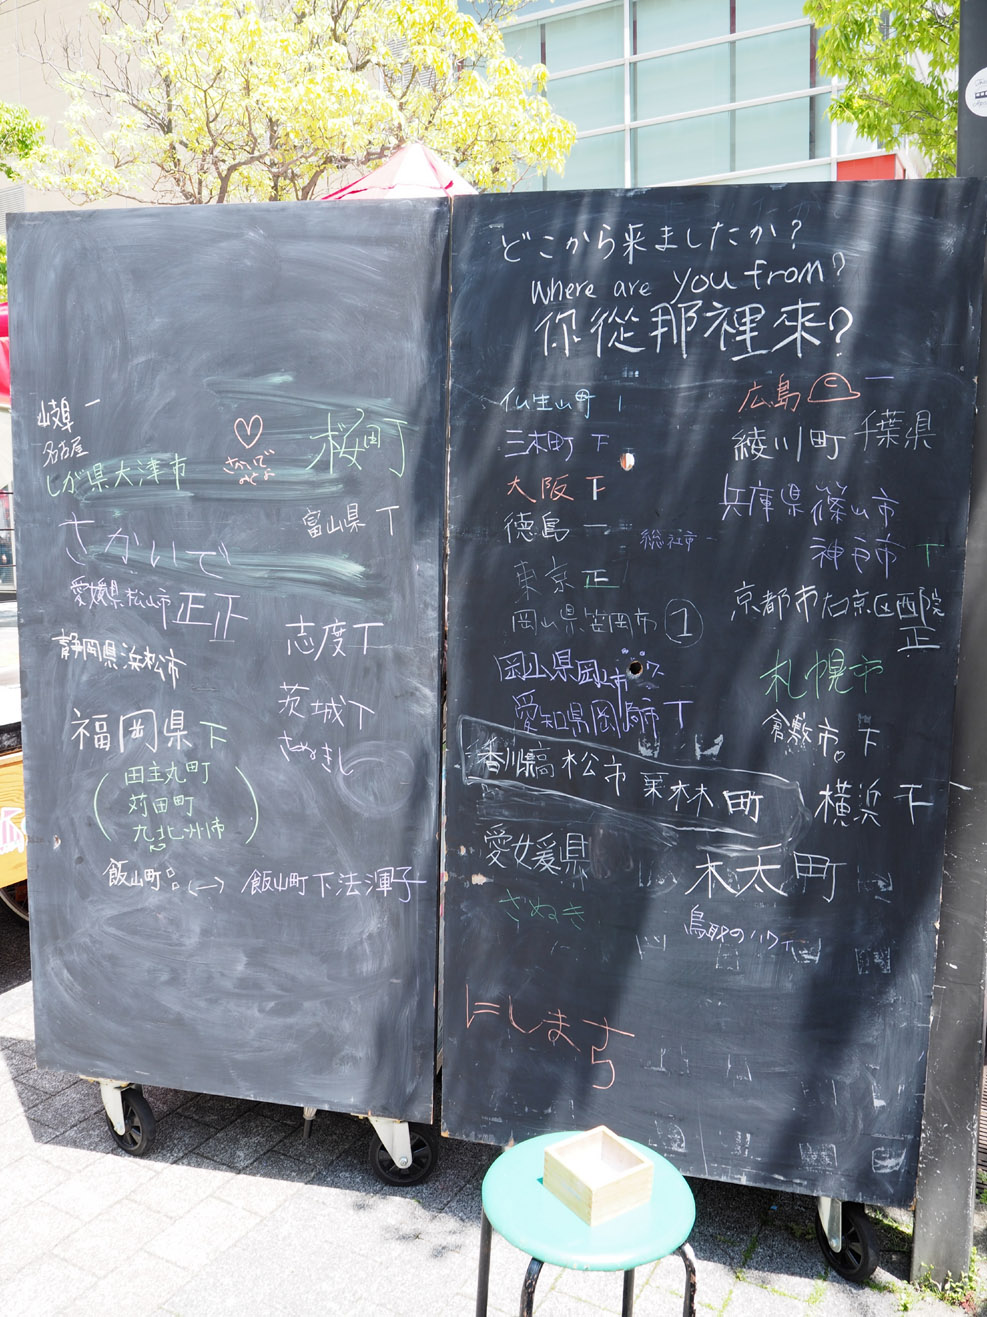 岐阜 一
名古屋
しが県大津市
さかいでのとなり
桜町
さかいで
富山県 丅
愛媛県松山市 正正
志度丅
静岡県浜松市
茨城丅
さぬきし
福岡県 下
田主丸町
苅田町
北九州市
飯山町
飯山町下法軍寺
どこから来ましたか?
Where are you from?
你從那裡來?
仏生山町 l
三木町 下
大阪 下
徳島 一
総社市 一
東京 正
岡山県笠岡市 ①
岡山県岡山市
愛知県岡崎市 丅
香川県高松市栗林町
愛媛県
さぬき
にしまち
広島 C 一
綾川町
千葉県
兵庫県篠山市
神戸市 丅
京都市右京区西院
正
札幌市
倉敷市。下
横浜 下
木太町
鳥取のハワイ